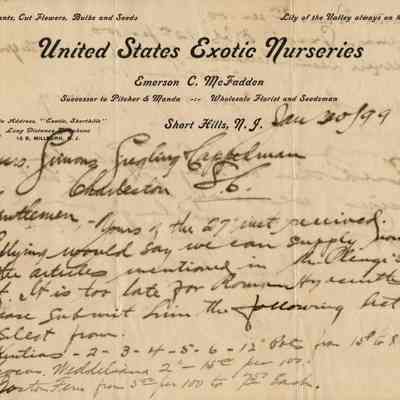 ants, Cut Flowers, Bulbs and Seeds
Lily of the Valley always on h
United States Exotic Nurseries
Emerson C. McFadden
Successor to Pitcher & Manda -:- Wholesale Florist and Seedsman
le Address, "Exotic, Shorthills"
Long Distance Telephone
16 B, MILLBURN, N. J.
Short Hills, N. J. Jan 30/99
Simons Siegling Cappelman
Charleston S.C.
entlemen, - Yours of the 27 inst received.
plying would say we can supply you
the articles mentioned in the
t. It is too late for Roman Hyacinths
ease submit him the following list
select from.
- 2 - 3 - 4 - 5 - 6 - 12 from 15¢ to
Weddeliana 2" - 15¢ per 100.
oston Fern from 5⁰⁰ per 100 to Each.